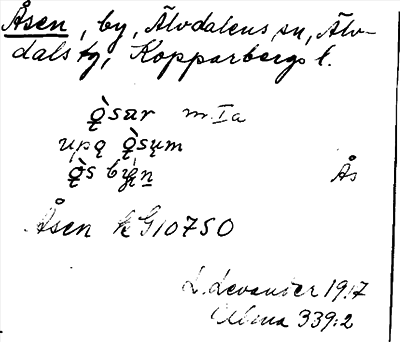 Åsen, by, Älvdalens sn, Älv-
dals tg, Kopparbergs l.
ǫ̀sar m. Ia
upǫ ǫ̀sųm
Ås
Åsen kG10750
L. Levander 1917
Ulma 339:2